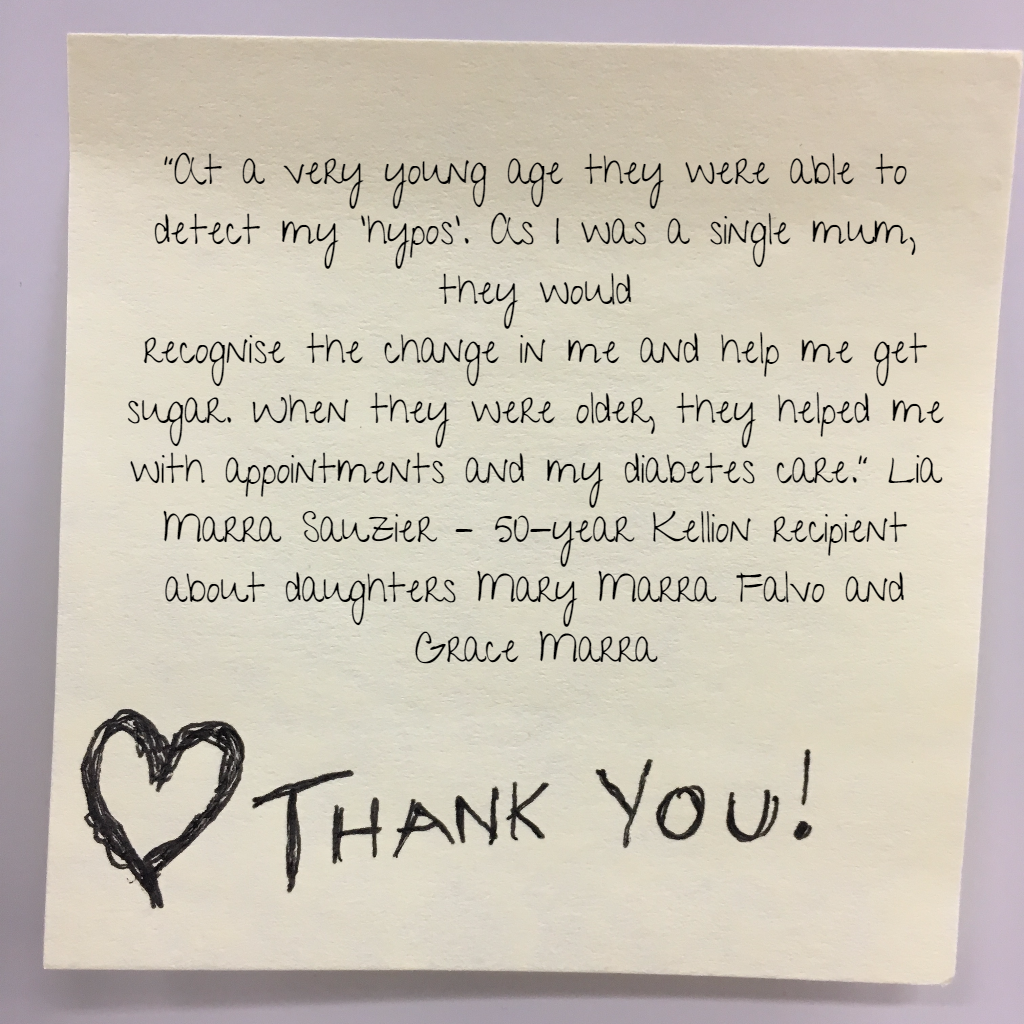 "At a very young age they were able to
detect my 'hypos'. As I was a single mum,
they would
recognise the change in me and help me get
sugar. When they were older, they helped me
with appointments and my diabetes care." Lia
Marra Sauzier - 50-year Kellion recipient
about daughters Mary Marra Falvo and
Grace Marra
THANK YOU!